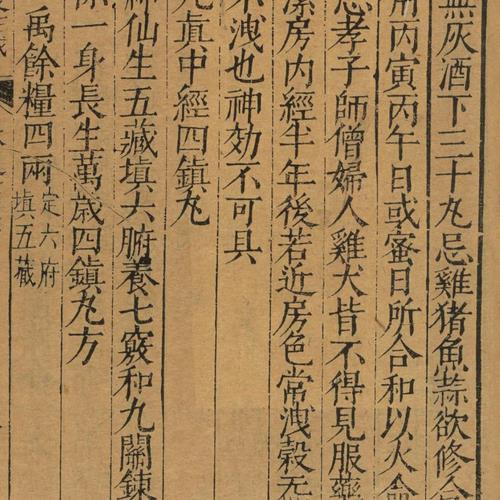 無灰酒下三十丸忌雞猪魚蒜欲修合
丙寅丙午日或蜜日所合和以火
忌孝子師僧婦人雞犬皆不得見服藥
潔房内經半年後若近房色常洩穀无
不洩也神効不可具
九眞中經四鎮丸
神仙生五藏填六腑養七竅和九關鍊
一身長生萬歳四鎮丸方
禹餘糧四兩定六府填五藏